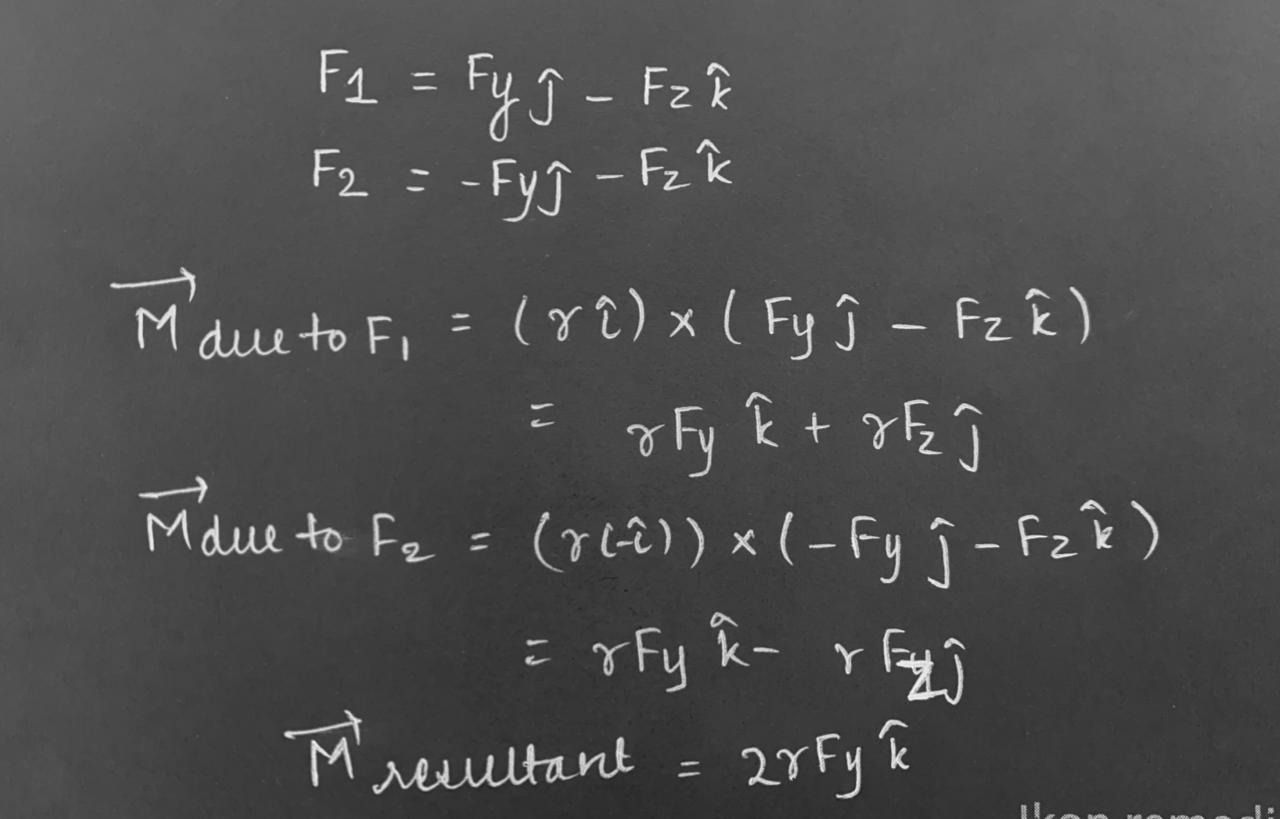 F1 = Fy ĵ - Fz k̂
F2 = -Fy ĵ - Fz k̂
M⃗ due to F1 = (r î) × ( Fy ĵ - Fz k̂ )
= rFy k̂ + rFz ĵ
M⃗ due to F2 = (r(-î)) × (-Fy ĵ - Fz k̂ )
= rFy k̂ - rFz ĵ
M⃗ resultant = 2rFy k̂